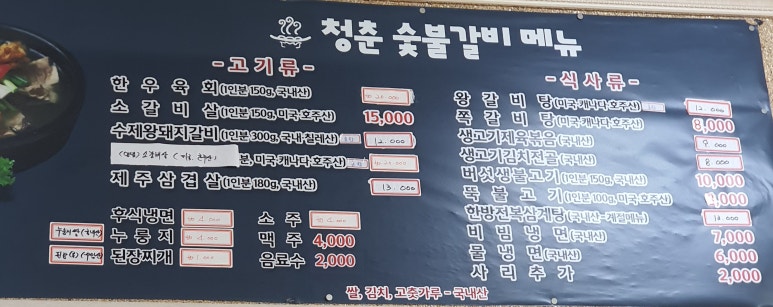 청춘 숯불갈비 메뉴
- 고기류 -
한우육회(1인분 150g, 국내산)
소갈비살(1인분 150g, 미국·호주산) 15,000
수제왕돼지갈비(1인분 300g, 국내·칠레산) 12.000
분, 미국·캐나다·호주산)
제주삼겹살(1인분 180g, 국내산) 13.000
후식냉면
누룽지
된장찌개
소주
맥주 4,000
음료수 2,000
- 식사류 -
왕갈비탕(미국·캐나다·호주산) 12.000
쪽갈비탕(미국·캐나다·호주산) 8,000
생고기제육볶음(국내산) 9.000
생고기김치전골(국내산) 8.000
버섯생불고기(1인분 150g, 국내산) 10,000
뚝불고기(1인분 100g, 미국·호주산)
한방전복삼계탕(국내산-계절메뉴)
비빔냉면(국내산) 7,000
물냉면(국내산) 6,000
사리추가 2,000
쌀, 김치, 고춧가루 - 국내산